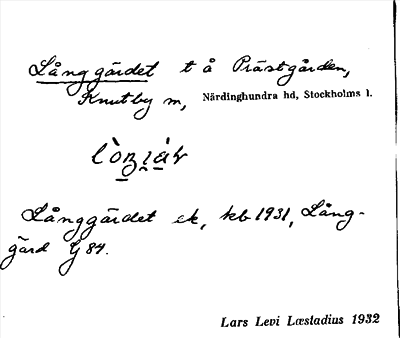 Långgärdet t å Prästgården,
Knutby m, Närdinghundra hd, Stockholms l.
Långgärdet ek, kb 1931, Lång-
gärd G 84.
Lars Levi Læstadius 1932